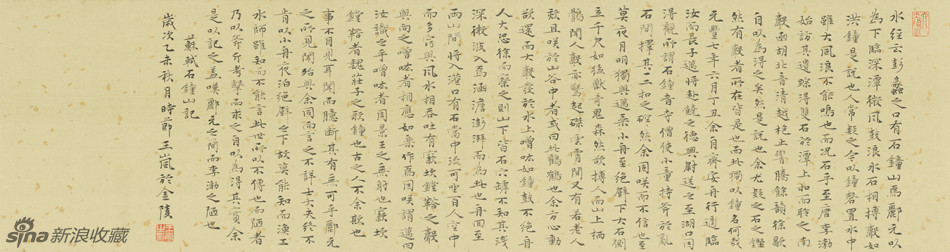 水經云彭蠡之口有石鐘山焉酈元以
為下臨深潭微風鼓浪水石相搏聲如
洪鐘是說也人常疑之今以鐘磬置水中
雖大風浪不能鳴也而況石乎至唐李渤
始訪其遺蹤得雙石於潭上扣而聆之南
聲函胡北音清越枹止響騰餘韻徐歇
自以為得之矣然是說也余尤疑之石之鏗
然有聲者所在皆是也而此獨以鐘名何哉
元豐七年六月丁丑余自齊安舟行適臨
汝而長子邁將赴饒之德興尉送之至湖口因
得觀所謂石鐘者寺僧使小童持斧於亂
石間擇其一二扣之硿然余固笑而不信也至
莫夜月明獨與邁乘小舟至絕壁下大石側
立千尺如猛獸奇鬼森然欲搏人而山上栖
鶻聞人聲亦驚起磔磔雲霄間又有若老人
欬且笑於山谷中者或曰此鸛鶴也余方心動
欲還而大聲發於水上噌吰如鐘鼓不絕舟
人大恐徐而察之則山下皆石穴罅不知其淺
深微波入焉涵澹澎湃而為此也舟迴至
兩山間將入港口有石當中流可坐百人空中
而多竅與風水相吞吐有窾坎鏜鞳之聲
與向之噌吰者相應如樂作焉因笑謂邁曰
汝識之乎噌吰者周景王之無射也窾坎
鏜鞳者魏莊子之歌鐘也古之人不余欺也
事不目見耳聞而臆斷其有無可乎酈元
之所見聞殆與余同而言之不詳士大夫終不
肯以小舟夜泊絕壁之下故莫能知而漁工
水師雖知而不能言此世所以不傳也而陋者
乃以斧斤考擊而求之自以為得其實余
是以記之蓋嘆酈元之簡而笑李渤之陋也
蘇軾石鐘山記
歲次乙未秋月時節王嵐於金陵
sina新浪收藏